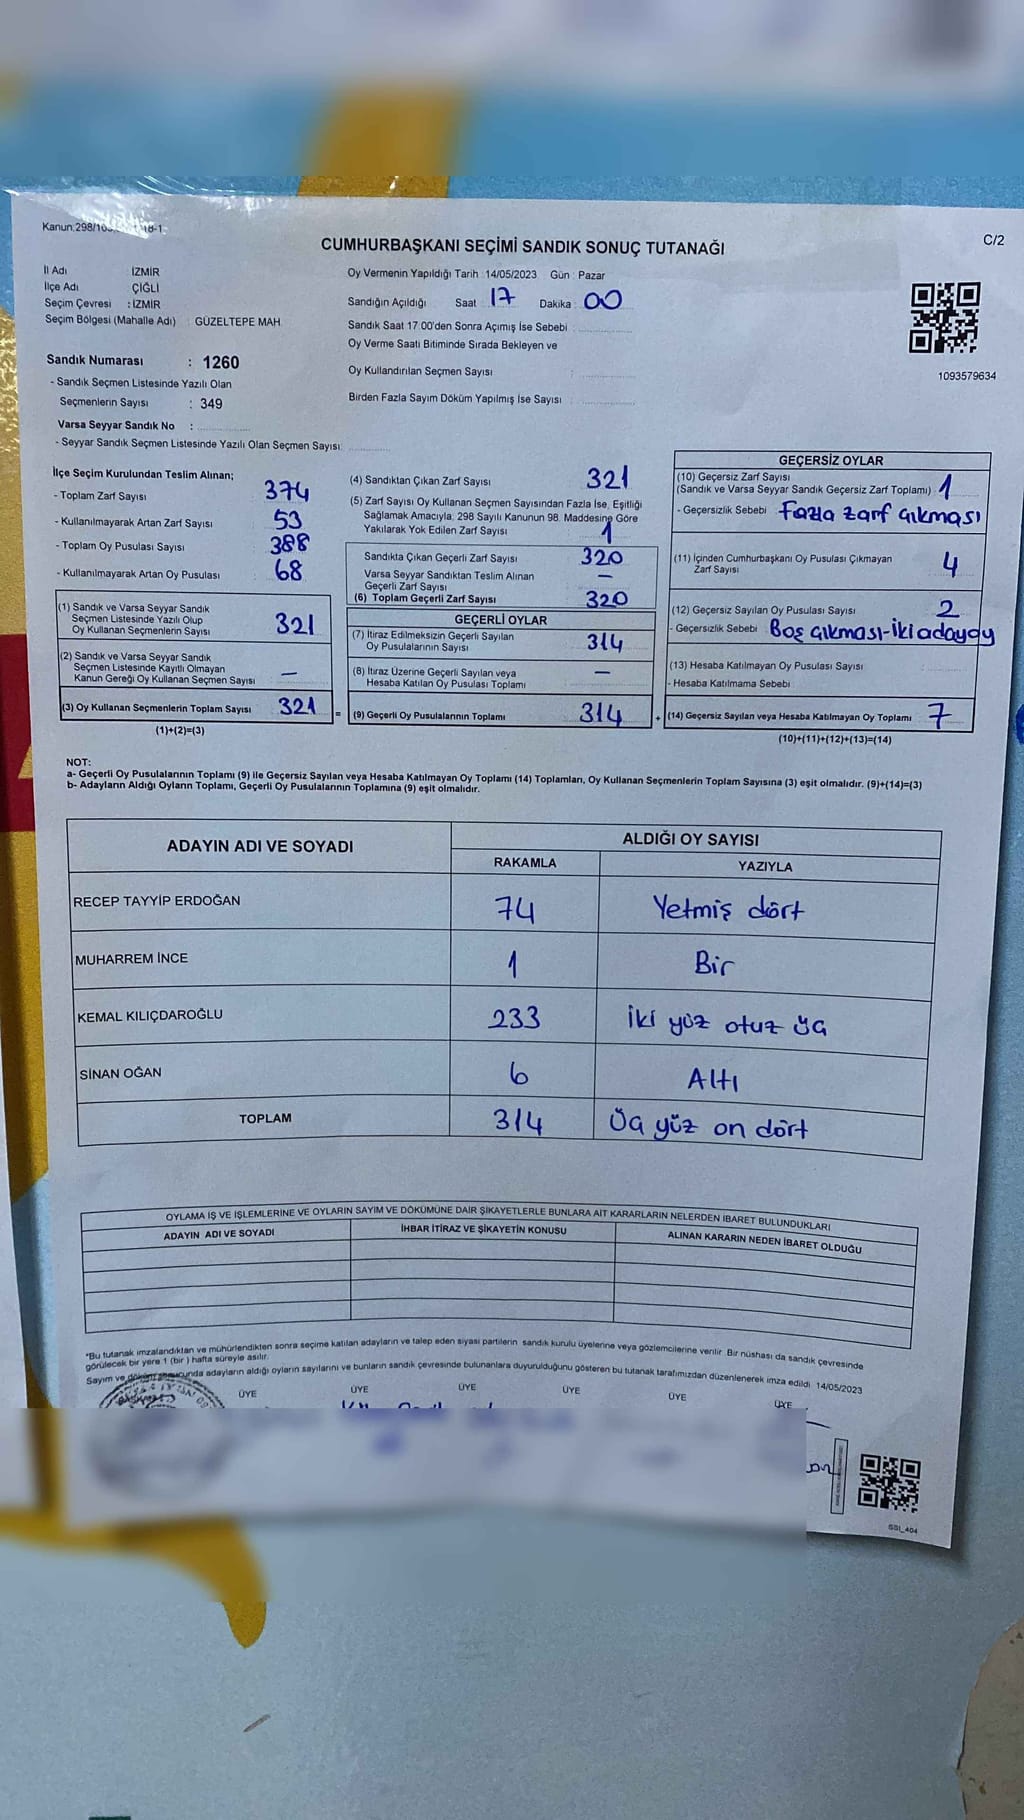 Kanun:298/10
18-1
CUMHURBAŞKANI SEÇİMİ SANDIK SONUÇ TUTANAĞI
C/2
İl Adı İZMİR
İlçe Adı ÇİĞLİ
Seçim Çevresi : İZMİR
Seçim Bölgesi (Mahalle Adı) : GÜZELTEPE MAH.
Oy Vermenin Yapıldığı Tarih : 14/05/2023 Gün : Pazar
Sandığın Açıldığı Saat 17 Dakika : 00
Sandık Saat 17:00'den Sonra Açımış İse Sebebi :
Oy Verme Saati Bitiminde Sırada Bekleyen ve
Oy Kullandırılan Seçmen Sayısı :
Birden Fazla Sayım Döküm Yapılmış İse Sayısı :
1093579634
Sandık Numarası : 1260
- Sandık Seçmen Listesinde Yazılı Olan
Seçmenlerin Sayısı : 349
Varsa Seyyar Sandık No :
- Seyyar Sandık Seçmen Listesinde Yazılı Olan Seçmen Sayısı:
İlçe Seçim Kurulundan Teslim Alınan;
- Toplam Zarf Sayısı 374
- Kullanılmayarak Artan Zarf Sayısı 53
- Toplam Oy Pusulası Sayısı 388
- Kullanılmayarak Artan Oy Pusulası 68
(1) Sandık ve Varsa Seyyar Sandık
Seçmen Listesinde Yazılı Olup
Oy Kullanan Seçmenlerin Sayısı 321
(2) Sandık ve Varsa Seyyar Sandık
Seçmen Listesinde Kayıtlı Olmayan
Kanun Gereği Oy Kullanan Seçmen Sayısı —
(3) Oy Kullanan Seçmenlerin Toplam Sayısı 321 =
(1)+(2)=(3)
(4) Sandıktan Çıkan Zarf Sayısı 321
(5) Zarf Sayısı Oy Kullanan Seçmen Sayısından Fazla İse, Eşitliği
Sağlamak Amacıyla, 298 Sayılı Kanunun 98. Maddesine Göre
Yakılarak Yok Edilen Zarf Sayısı 1
Sandıkta Çıkan Geçerli Zarf Sayısı 320
Varsa Seyyar Sandıktan Teslim Alınan
Geçerli Zarf Sayısı —
(6) Toplam Geçerli Zarf Sayısı 320
GEÇERLİ OYLAR
(7) İtiraz Edilmeksizin Geçerli Sayılan
Oy Pusulalarının Sayısı 314
(8) İtiraz Üzerine Geçerli Sayılan veya
Hesaba Katılan Oy Pusulası Toplamı —
(9) Geçerli Oy Pusulalarının Toplamı 314 +
GEÇERSİZ OYLAR
(10) Geçersiz Zarf Sayısı
(Sandık ve Varsa Seyyar Sandık Geçersiz Zarf Toplamı) 1
- Geçersizlik Sebebi Fazla zarf çıkması
(11) İçinden Cumhurbaşkanı Oy Pusulası Çıkmayan
Zarf Sayısı 4
(12) Geçersiz Sayılan Oy Pusulası Sayısı 2
- Geçersizlik Sebebi Boş çıkması-iki adayoy
(13) Hesaba Katılmayan Oy Pusulası Sayısı
- Hesaba Katılmama Sebebi
(14) Geçersiz Sayılan veya Hesaba Katılmayan Oy Toplamı 7
(10)+(11)+(12)+(13)=(14)
NOT:
a- Geçerli Oy Pusulalarının Toplamı (9) ile Geçersiz Sayılan veya Hesaba Katılmayan Oy Toplamı (14) Toplamları, Oy Kullanan Seçmenlerin Toplam Sayısına (3) eşit olmalıdır. (9)+(14)=(3)
b- Adayların Aldığı Oyların Toplamı, Geçerli Oy Pusulalarının Toplamına (9) eşit olmalıdır.
ADAYIN ADI VE SOYADI ALDIĞI OY SAYISI
RAKAMLA YAZIYLA
RECEP TAYYİP ERDOĞAN 74 Yetmiş dört
MUHARREM İNCE 1 Bir
KEMAL KILIÇDAROĞLU 233 iki yüz otuz üç
SİNAN OĞAN 6 Altı
TOPLAM 314 Üç yüz on dört
OYLAMA İŞ VE İŞLEMLERİNE VE OYLARIN SAYIM VE DÖKÜMÜNE DAİR ŞİKAYETLERLE BUNLARA AİT KARARLARIN NELERDEN İBARET BULUNDUKLARI
ADAYIN ADI VE SOYADI İHBAR İTİRAZ VE ŞİKAYETİN KONUSU ALINAN KARARIN NEDEN İBARET OLDUĞU
*Bu tutanak imzalandıktan ve mühürlendikten sonra seçime katılan adayların ve talep eden siyasi partilerin sandık kurulu üyelerine veya gözlemcilerine verilir. Bir nüshası da sandık çevresinde
görülecek bir yere 1 (bir) hafta süreyle asılır.
Sayım ve döküm sonucunda adayların aldığı oyların sayılarını ve bunların sandık çevresinde bulunanlara duyurulduğunu gösteren bu tutanak tarafımızdan düzenlenerek imza edildi. 14/05/2023
ÜYE ÜYE ÜYE ÜYE ÜYE ÜYE
SSI_404